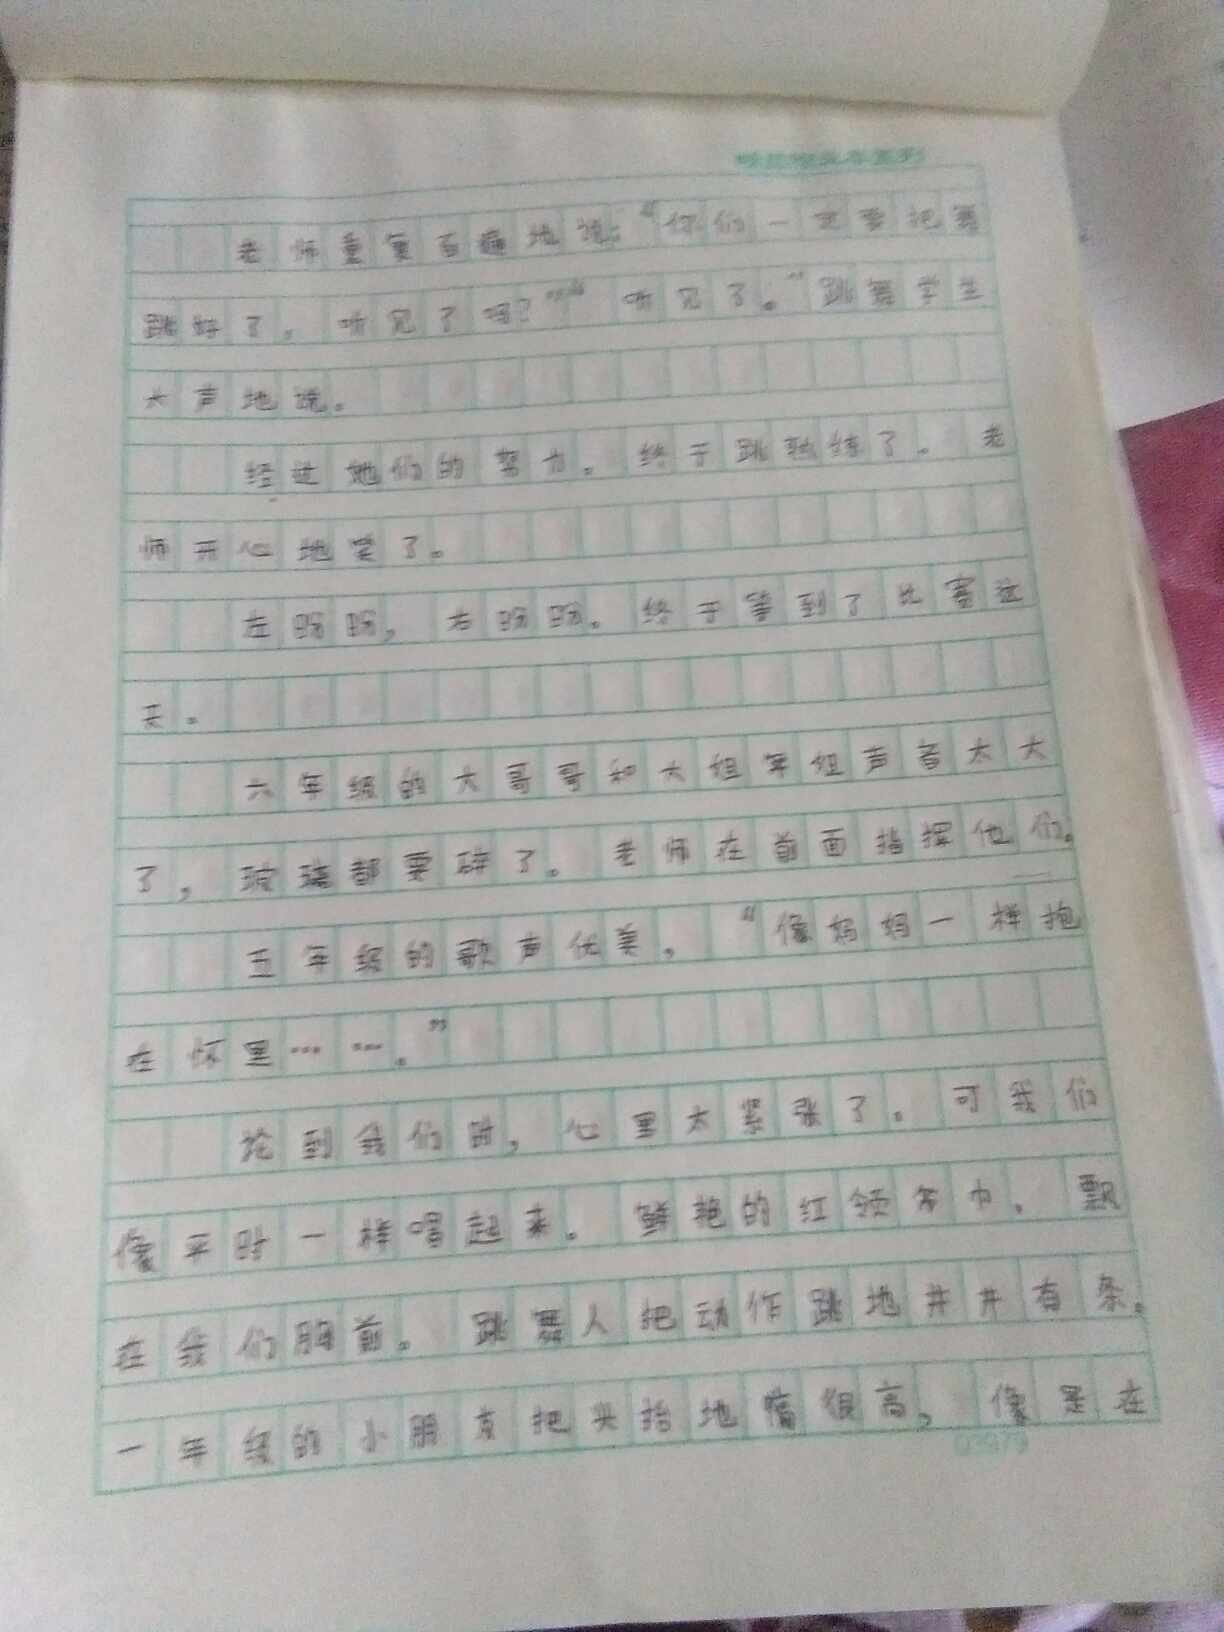 老师重复百遍地说:“你们一定要把舞
跳好了,听见了吗?”“听见了。”跳舞学生
大声地说。
经过她们的努力。终于跳熟练了。老
师开心地笑了。
左盼盼,右盼盼。终于等到了比赛这
天。
六年级的大哥哥和大姐年姐声音太大
了,玻璃都要碎了。老师在前面指挥他们。
五年级的歌声优美,“像妈妈一样抱
在怀里……。”
论到我们时,心里太紧张了。可我们
像平时一样唱起来。鲜艳的红领巾,飘
在我们胸前。跳舞人把动作跳地井井有条。
一年级的小朋友把头抬地很高,像是在
03079